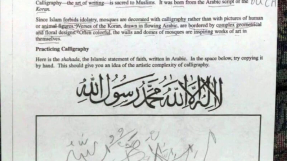 Calligraphy—the art of writing—is sacred to Muslims. It was from the Arabic script of the
Koran.
Since Islam forbids idolatry, mosques are decorated with calligraphy rather than with pictures of human
or animal figures. Verses of the Koran, drawn in flowing Arabic, are bordered by complex geometrical
and floral designs. Often colorful, the walls and domes of mosques are inspiring works of art in
themselves.
Practicing Calligraphy
Here is the shahada, the Islamic statement of faith, written in Arabic. In the space below, try copying it
by hand. This should give you an idea of the artistic complexity of calligraphy.
لا إله إلا الله محمد رسول الله